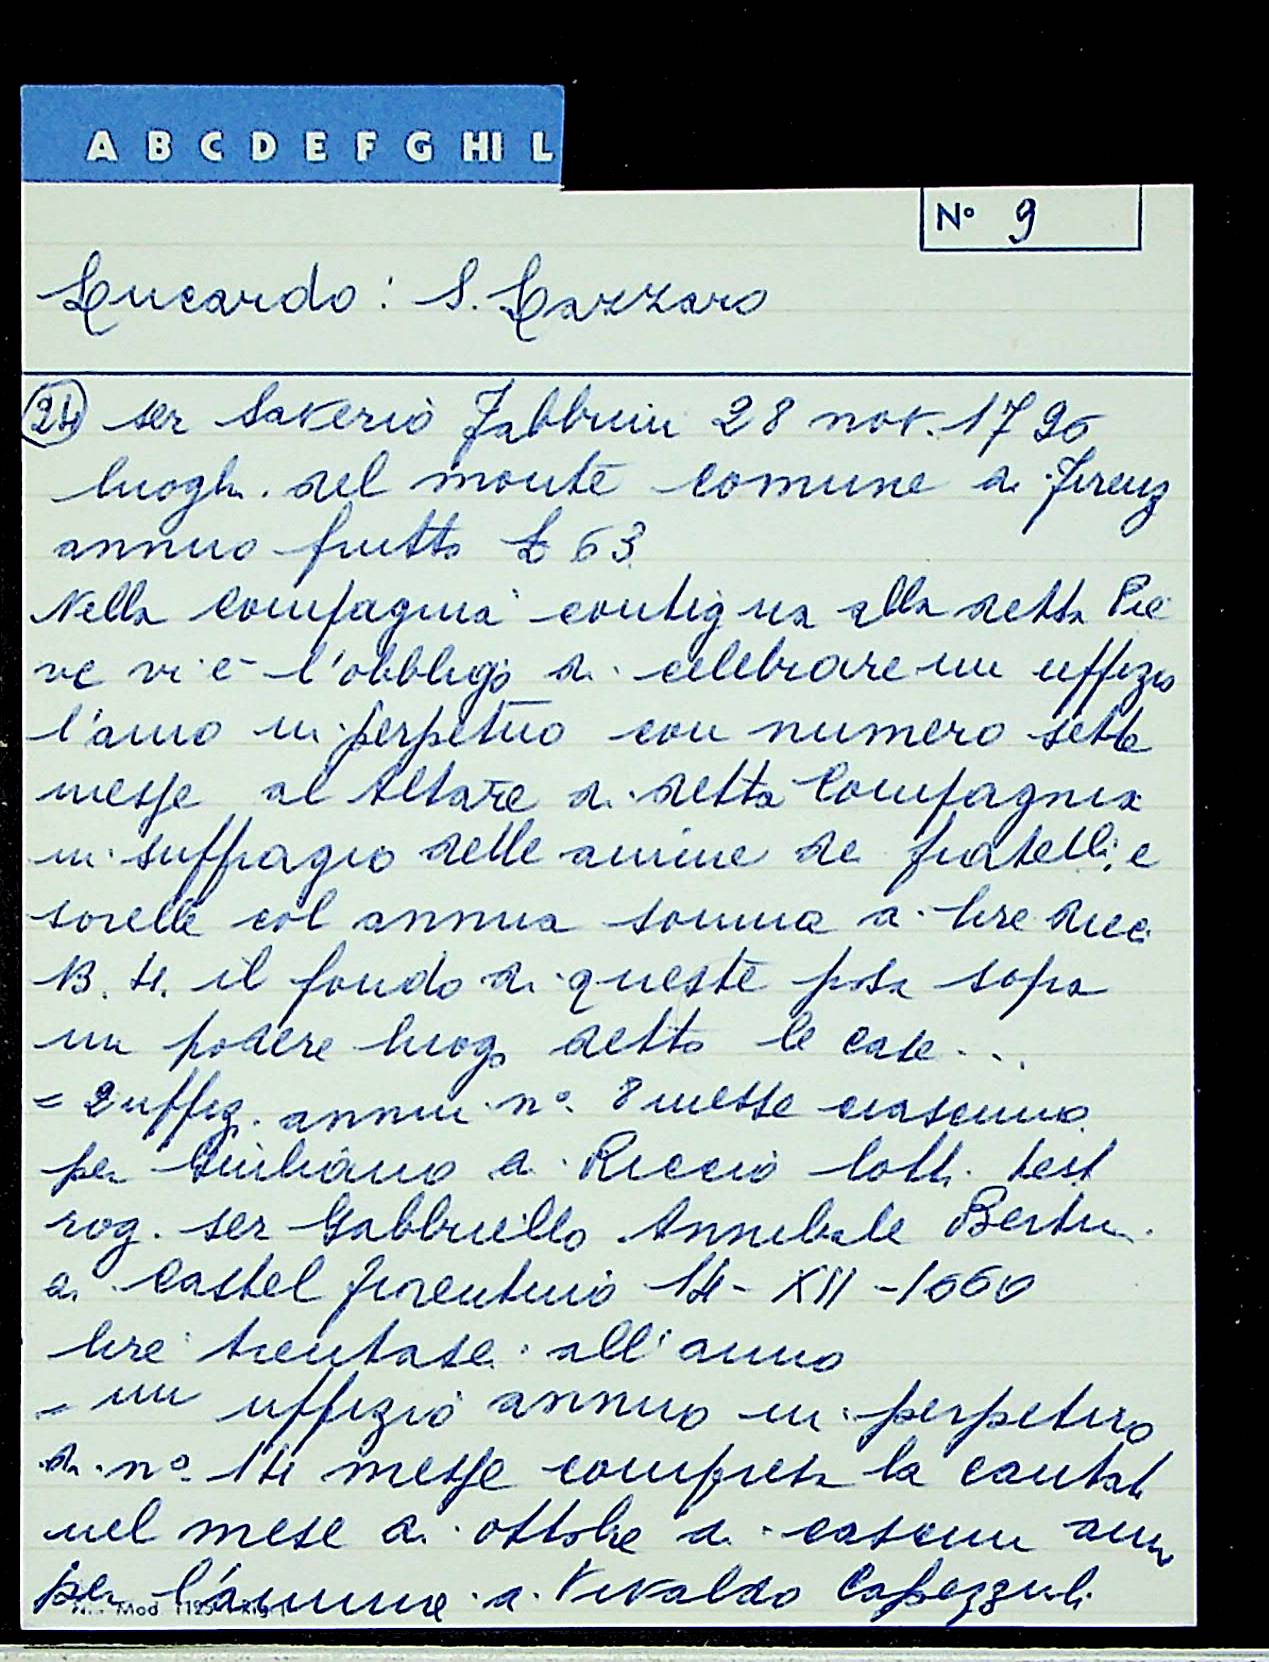 A B C D E F G HI L
N° 9
Lucardo: S. Lazzaro
24 ser Saverio Fabbrini 28 nov. 1796
luoghi del monte comune di Firenz
annuo frutto £ 63
Nella Compagnia contigua alla detta Pie
ve vi è l'obbligo di celebrare un uffizio
l'anno in perpetuo con numero sette
messe al Altare di detta Compagnia
in suffragio delle anime de fratelli, e
sorelle col annua somma di lire dieci
13. 4. il fondo di queste posa sopra
un podere luogo detto le case...
= 2 uffiz. annui n°. 8 messe ciascuno
per Giuliano di Riccio Lotti test
rog. ser Gabbriello Annibale Bertini
a Castel fiorentino 14 - XII - 1660
lire trentasei all'anno
= un uffizio annuo in perpetuo
di n° 14 messe compresa la cantata
nel mese di ottobre di ciascun anno
per l'anime di Vivaldo Capezzuoli